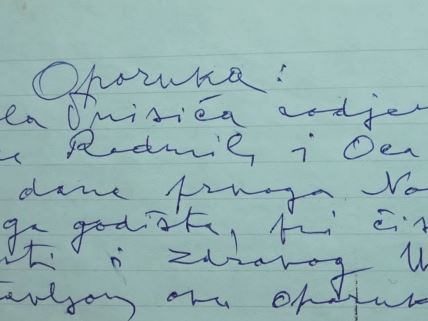 Oporuka:
la Prnisića rodjen
e Radmili i Oca
dana prvoga No
ga godišta, pri čis
sti i zdravog U
tavljam ovu oporuk